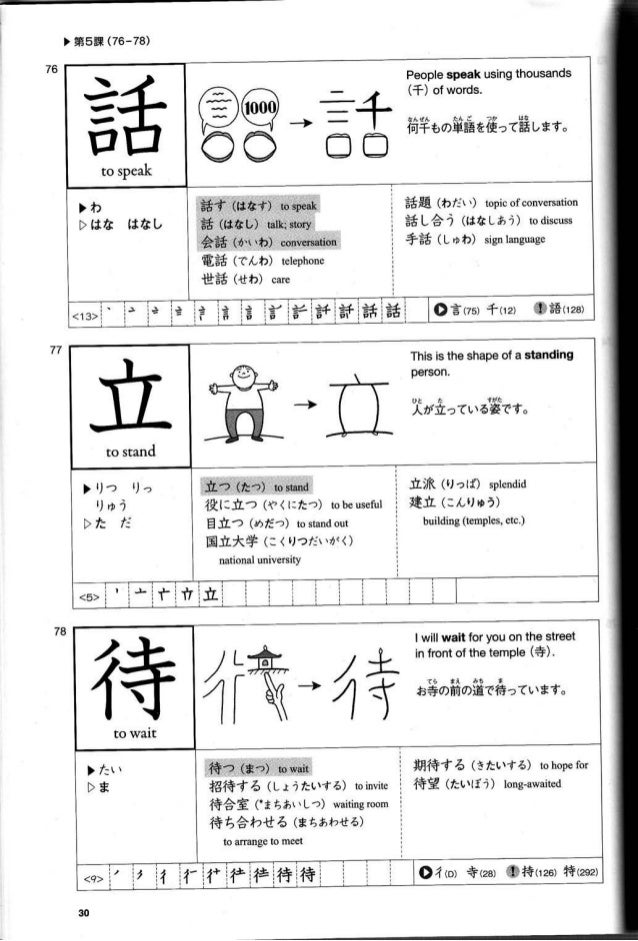 ▶第5課 (76-78)
76
話
to speak
1000
千
People speak using thousands
(千) of words.
なんぜん たんご つか はな
何千もの単語を使って話します。
▶わ
▷はな はなし
話す (はなす) to speak
話 (はなし) talk; story
会話 (かいわ) conversation
電話 (でんわ) telephone
世話 (せわ) care
話題 (わだい) topic of conversation
話し合う (はなしあう) to discuss
手話 (しゅわ) sign language
<13>
言(75) 千(12) 語(128)
77
立
to stand
This is the shape of a standing
person.
ひと た すがた
人が立っている姿です。
▶りつ りっ
りゅう
▷た だ
立つ (たつ) to stand
役に立つ (やくにたつ) to be useful
目立つ (めだつ) to stand out
国立大学 (こくりつだいがく)
national university
立派 (りっぱ) splendid
建立 (こんりゅう)
building (temples, etc.)
<5>
立
78
待
to wait
I will wait for you on the street
in front of the temple (寺).
てら まえ みち ま
お寺の前の道で待っています。
▶たい
▷ま
待つ (まつ) to wait
招待する (しょうたいする) to invite
待合室 (*まちあいしつ) waiting room
待ち合わせる (まちあわせる)
to arrange to meet
期待する (きたいする) to hope for
待望 (たいぼう) long-awaited
<9>
彳(D) 寺(28) 持(126) 特(292)
30